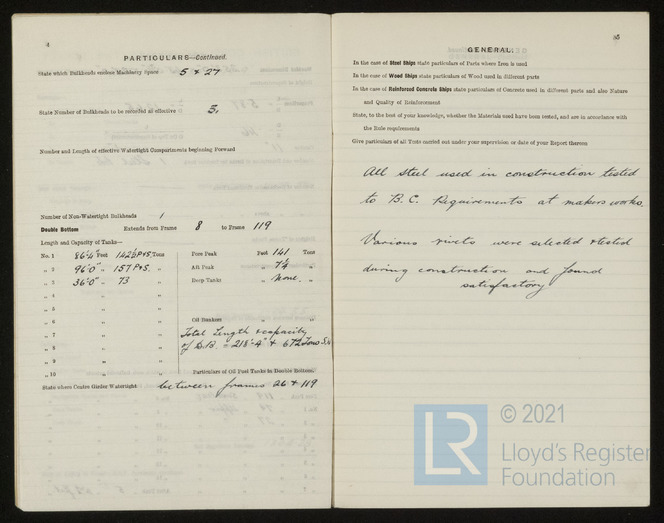 4
PARTICULARS—Continued.
State which Bulkheads enclose Machinery Space 5 & 27
State Number of Bulkheads to be recorded as effective 5.
Number and Length of effective Watertight Compartments beginning Forward
Number of Non-Watertight Bulkheads 1
Double Bottom Extends from Frame 8 to Frame 119
Length and Capacity of Tanks—
No. 1 86'-4" Feet P+S. Tons Fore Peak Feet 141 Tons
„ 2 96'-0" „ 157 P+S. „ Aft Peak „ 74 „
„ 3 36'-0" „ 73 „ Deep Tanks „ None. „
„ 4 „ „
„ 5 „ „
„ 6 „ „ Oil Bunkers „ „
„ 7 „ „ Total Length & capacity
„ 8 „ „ of D.B. = 218'-4" & 672 Tons S.W
„ 9 „ „
„ 10 „ „ Particulars of Oil Fuel Tanks in Double Bottom.
State where Centre Girder Watertight between frames 26 & 119
5
GENERAL.
In the case of Steel Ships state particulars of Parts where Iron is used
In the case of Wood Ships state particulars of Wood used in different parts
In the case of Reinforced Concrete Ships state particulars of Concrete used in different parts and also Nature
and Quality of Reinforcement
State, to the best of your knowledge, whether the Materials used have been tested, and are in accordance with
the Rule requirements
Give particulars of all Tests carried out under your supervision or date of your Report thereon
All steel used in construction tested
to B.C. Requirements at makers works.
Various rivets were selected & tested
during construction and found
satisfactory
LR
© 2021
Lloyd's Register
Foundation